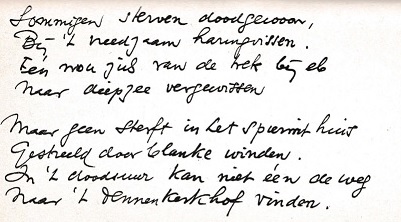 Sommigen sterven doodgewoon,
Bij 't vreedzaam haringvissen.
Eén wou juist van de trek bij eb
Naar diepzee vergewissen

Maar geen sterft in het spinnhuis
Gestreeld door blanke winden.
In 't doodsuur kan niet één de weg
Naar 't dennenkerkhof vinden.